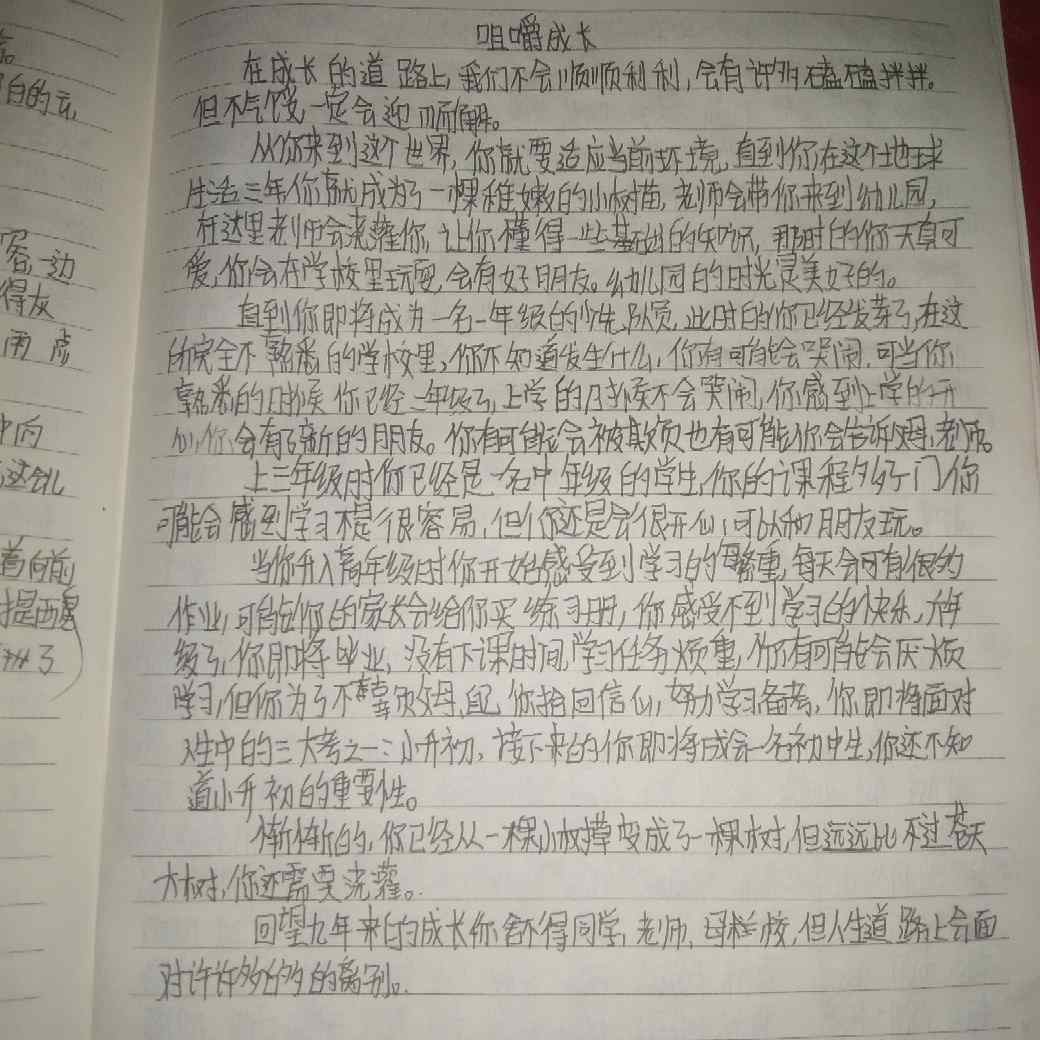 咀嚼成长
在成长的道路上,我们不会顺顺利利,会有许多磕磕拌拌。
但不气馁,一定会迎而解。
从你来到这个世界,你就要适应当前环境,直到你在这个地球
生活三年你就成为了一棵稚嫩的小树苗,老师会带你来到幼儿园,
在这里老师会浇灌你,让你懂得一些基础的知识,那时的你天真可
爱,你会在学校里玩耍,会有好朋友。幼儿园的时光是美好的。
直到你即将成为一名一年级的少先队员,此时的你已经发芽了,在这
所完全不熟悉的学校里,你不知道发生什么,你有可能会哭闹,可当你
熟悉的时候你已经二年级了,上学的时候不会哭闹,你感到上学的开
心,你会有了新的朋友。你有可能会被欺负也有可能你会告诉父母,老师。
上三年级时你已经是一名中年级的学生,你的课程多了一门,你
可能会感到学习不是很容易,但你还是会很开心,可以和朋友玩。
当你升入高年级时你开始感受到学习的繁重,每天会可有很多
作业,可能你的家长会给你买练习册,你感受不到学习的快乐,六年
级了,你即将毕业,没有下课时间,学习任务烦重,你有可能会厌烦
学习,但你为了不辜负父母、自己,你拾回信心,努力学习备考,你即将面对
人生中的三大考之一:小升初,接下来的你即将成会一名初中生,你还不知
道小升初的重要性。
惭惭的,你已经从一棵小树变成了一棵树,但远远比不过苍天
大树,你还需要浇灌。
回望九年来的成长你舍不得同学,老师,母校,但人生道路上会面
对许许多多的离别。
白的云,
容,一边
得灰
雨点
中向
这会儿
着向前